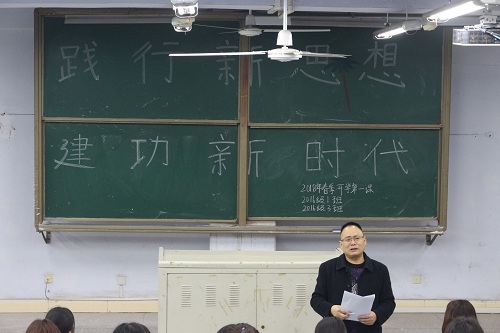 践行新思想
建功新时代
2018年春季开学第一课
2016级1班
2016级3班